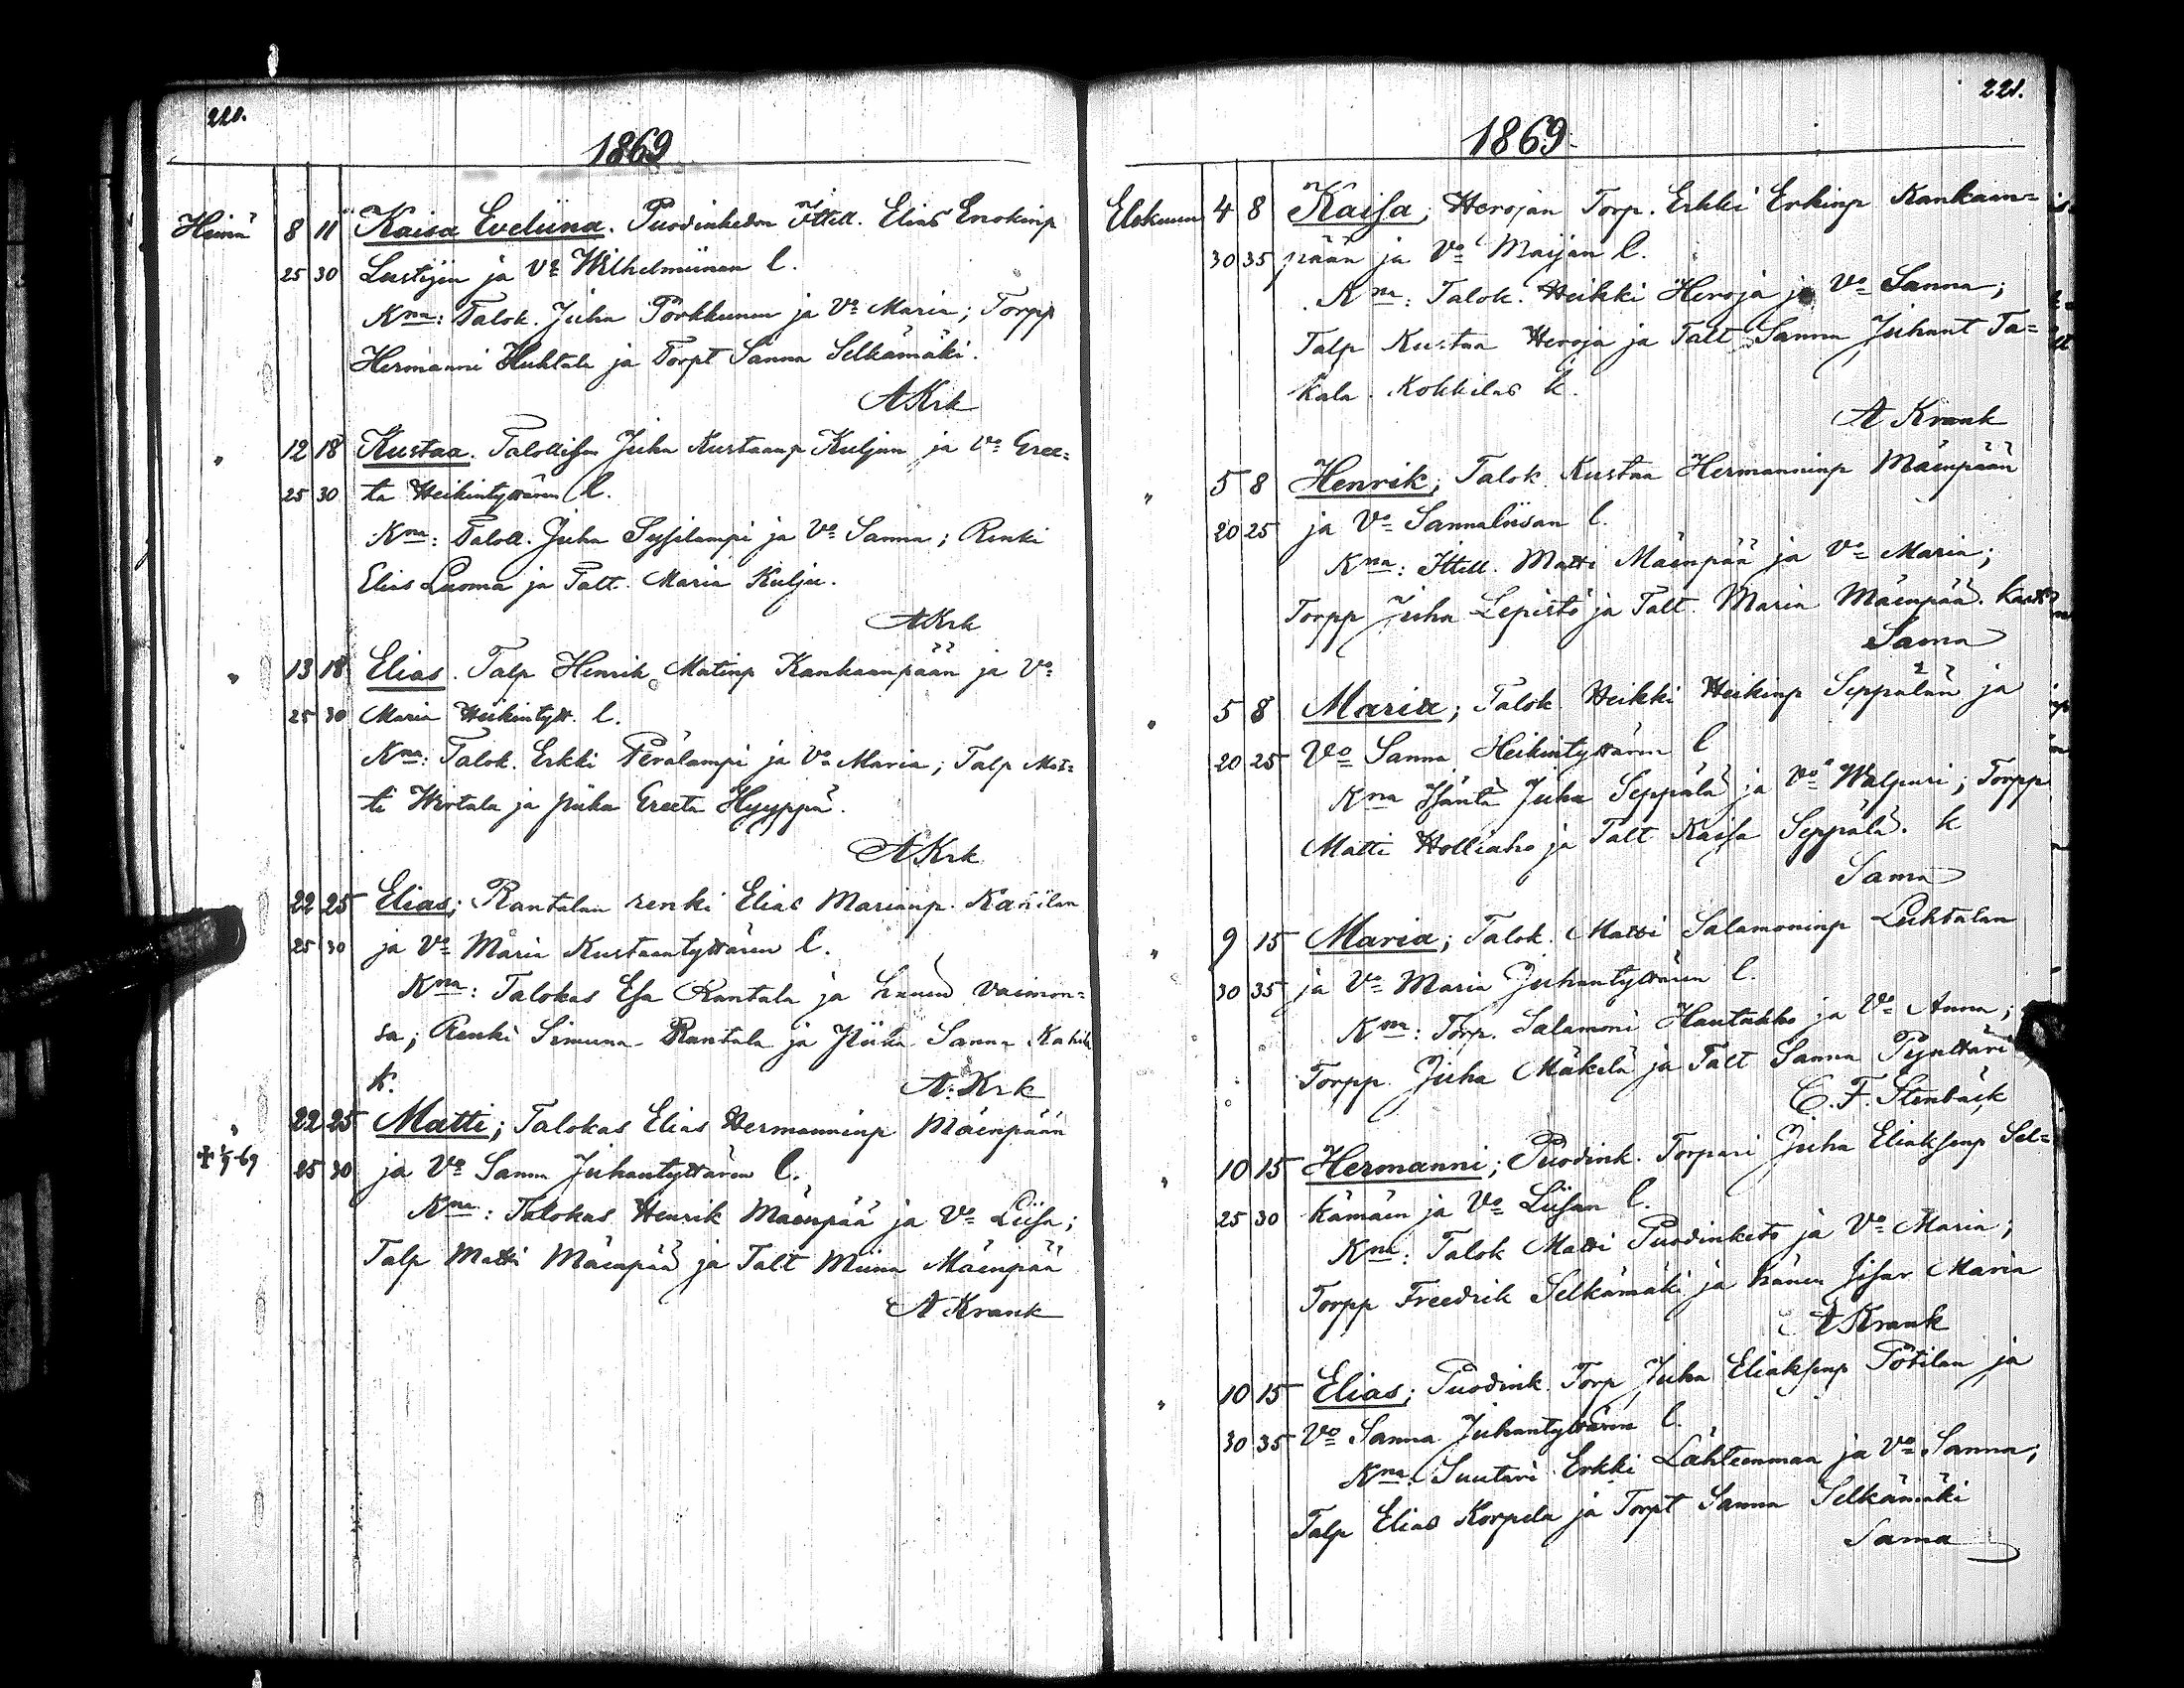 220.
1869
Heinä 8 11 Kaisa Eveliina. Puodinkedon Ittell. Elias Enokinp
25 30 Lustijen ja Vo Wilhelmiinan l.
Kna: Talok. Juha Porkkunen ja Vo Maria; Torpp
Hermanni Huhtala ja Torpt Sanna Selkämäki.
AKrk
" 12 18 Kustaa. Talollisen Juha Kustaanp Kuljun ja Vo Gree=
25 30 ta Heikintyttären l.
Kna: Taloll. Juha Sysilampi ja Vo Sanna; Renki
Elias Luoma ja Talt. Maria Kulju.
AKrk
" 13 18 Elias. Talp Henrik Matinp Kankaanpään ja Vo
25 30 Maria Heikintytt. l.
Kna: Talok. Erkki Perälampi ja Vo Maria; Talp Mat=
ti Wirtala ja piika Greeta Hyyppä.
AKrk
22 25 Elias; Rantalan renki Elias Marianp. Kahilan
25 30 ja Vo Maria Kustaantyttären l.
Kna: Talokas Esa Rantala ja hänen vaimon=
sa; Renki Simuna Rantala ja Piika Sanna Kahila
k. A. Krk
" 22 25 Matti; Talokas Elias Hermanninp Mäenpään
25 30 ja Vo Sanna Juhantyttären l.
Kna: Talokas Henrik Mäenpää ja Vo Liisa;
Talp Matti Mäenpää ja Talt Miina Mäenpää
A Krank
221.
1869.
Elokuun 4 8 Kaisa; Herojan Torp. Erkki Erkinp Kankaan=
30 35 pään ja Vo Maijan l.
Kna: Talok. Heikki Heroja ja Vo Sanna;
Talp Kustaa Heroja ja Talt Sanna Juhant Ta=
kala. Kokkilas k.
A Krank
" 5 8 Henrik; Talok. Kustaa Hermanninp Mäenpään
20 25 ja Vo Sannaliisan l.
Kna: Ittell. Matti Mäenpää ja Vo Maria;
Torpp Juha Lepistö ja Talt. Maria Mäenpää.
Sama
" 5 8 Maria; Talok. Heikki Heikinp Seppälän ja
20 25 Vo Sanna Heikintyttären l
Kna Isäntä Juha Seppälä ja Vo Walpuri; Torpp
Matti Holliaho ja Talt Kaisa Seppälä. k
Sama
" 9 15 Maria; Talok. Matti Salamoninp Luhtalan
30 35 ja Vo Maria Juhantyttären l.
Kna: Torp. Salamoni Hautakko ja Vo Anna;
Torpp. Juha Mäkelä ja Talt Sanna Pynttäri
C. F. Stenbäck
" 10 15 Hermanni; Puodink. Torpari Juha Eliaksenp Sel=
25 30 kämäin ja Vo Liisan l.
Kna: Talok Matti Puodinketo ja Vo Maria;
Torpp Freedrik Selkämäki ja hänen sisar Maria
A Krank
" 10 15 Elias; Puodink. Torp Juha Eliaksenp Potilan ja
30 35 Vo Sanna Juhantyttären l.
Kna. Suutari Erkki Lähteenmaa ja Vo Sanna;
Talp Elias Korpela ja Torpt Sanna Selkämäki
Sama